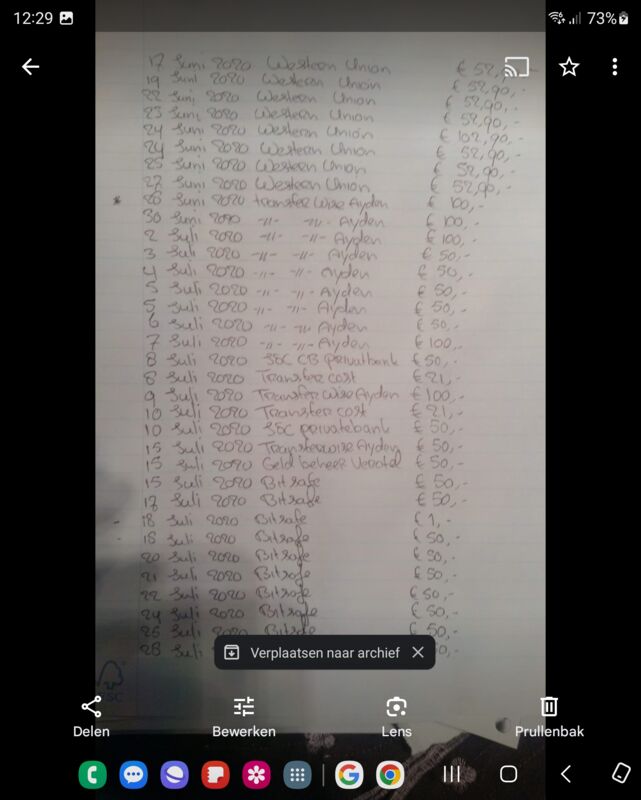 12:29 73%
17 Juni 2020 Western Union € 52,90,-
19 Juni 2020 Western Union € 52,90,-
22 Juni 2020 Western Union € 52,90,-
23 Juni 2020 Western Union € 52,90,-
24 Juni 2020 Western Union € 102,90,-
24 Juni 2020 Western Union € 52,90,-
25 Juni 2020 Western Union € 52,90,-
27 Juni 2020 Western Union € 52,90,-
* 28 Juni 2020 transfer Wise Ayden € 100,-
30 Juni 2020 -"- -"- Ayden € 100,-
2 Juli 2020 -"- -"- Ayden € 100,-
3 Juli 2020 -"- -"- Ayden € 50,-
4 Juli 2020 -"- -"- Ayden € 50,-
5 Juli 2020 -"- -"- Ayden € 50,-
5 Juli 2020 -"- -"- Ayden € 50,-
6 Juli 2020 -"- -"- Ayden € 50,-
7 Juli 2020 -"- -"- Ayden € 100,-
8 Juli 2020 CB privatbank € 50,-
8 Juli 2020 Transfer cost € 21,-
9 Juli 2020 Transfer Wise Ayden € 100,-
10 Juli 2020 Transfer cost € 21,-
10 Juli 2020 privatebank € 50,-
15 Juli 2020 Transferwise Ayden € 50,-
15 Juli 2020 Geld beheer € 50,-
15 Juli 2020 Bitsafe € 50,-
17 Juli 2020 Bitsafe € 50,-
- 18 Juli 2020 Bitsafe € 1,-
- 18 Juli 2020 Bitsafe € 50,-
20 Juli 2020 Bitsafe € 50,-
21 Juli 2020 Bitsafe € 50,-
22 Juli 2020 Bitsafe € 50,-
24 Juli 2020 Bitsafe € 50,-
25 Juli 2020 Bitsafe € 50,-
28 Juli 0,-
Verplaatsen naar archief
FSC
Delen Bewerken Lens Prullenbak